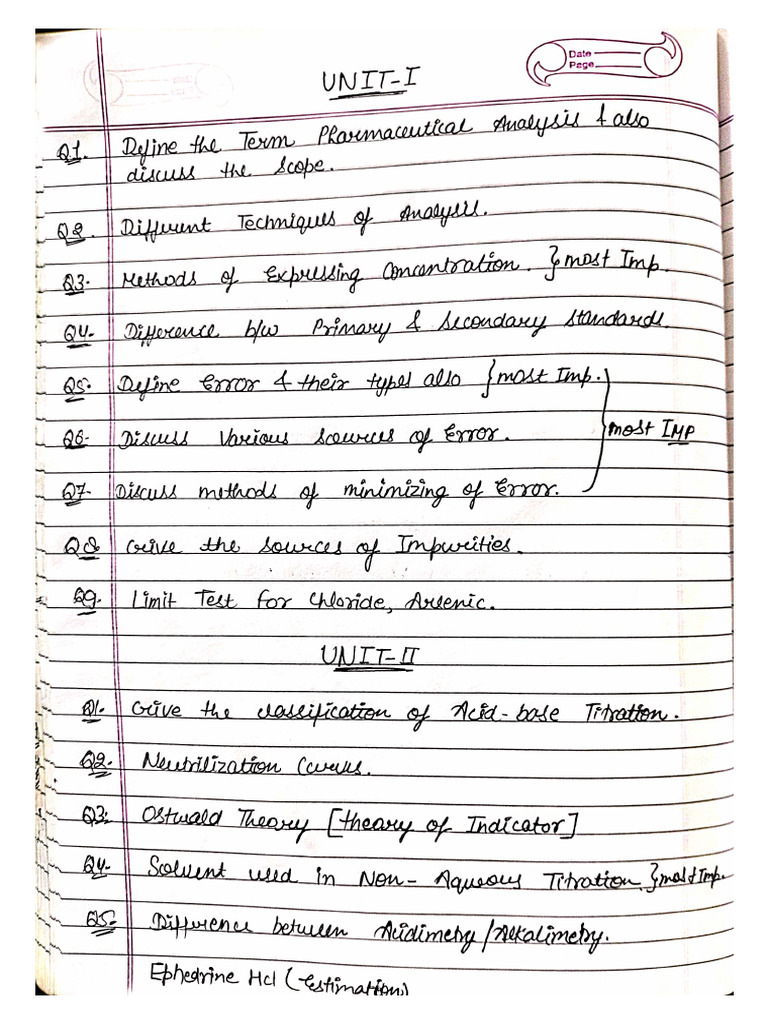 Date
Page
UNIT-I
Q1. Define the Term Pharmaceutical Analysis & also
discuss the Scope.
Q2. Different Techniques of Analysis.
Q3. Methods of Expressing Concentration. } most Imp.
Q4. Difference b/w Primary & Secondary Standards.
Q5. Define Error & their types also } most Imp.
Q6. Discuss Various Sources of Error.
most IMP
Q7. Discuss methods of minimizing of Error.
Q8 Give the Sources of Impurities.
Q9. Limit Test for Chloride, Arsenic.
UNIT-II
Q1. Give the classification of Acid-base Titration.
Q2. Neutrilization Curves.
Q3. Ostwald Theory [theory of Indicator]
Q4. Solvent used in Non-Aqueous Titration. } most Imp.
Q5. Difference between Acidimetry/Alkalimetry.
Ephedrine Hcl (Estimation)